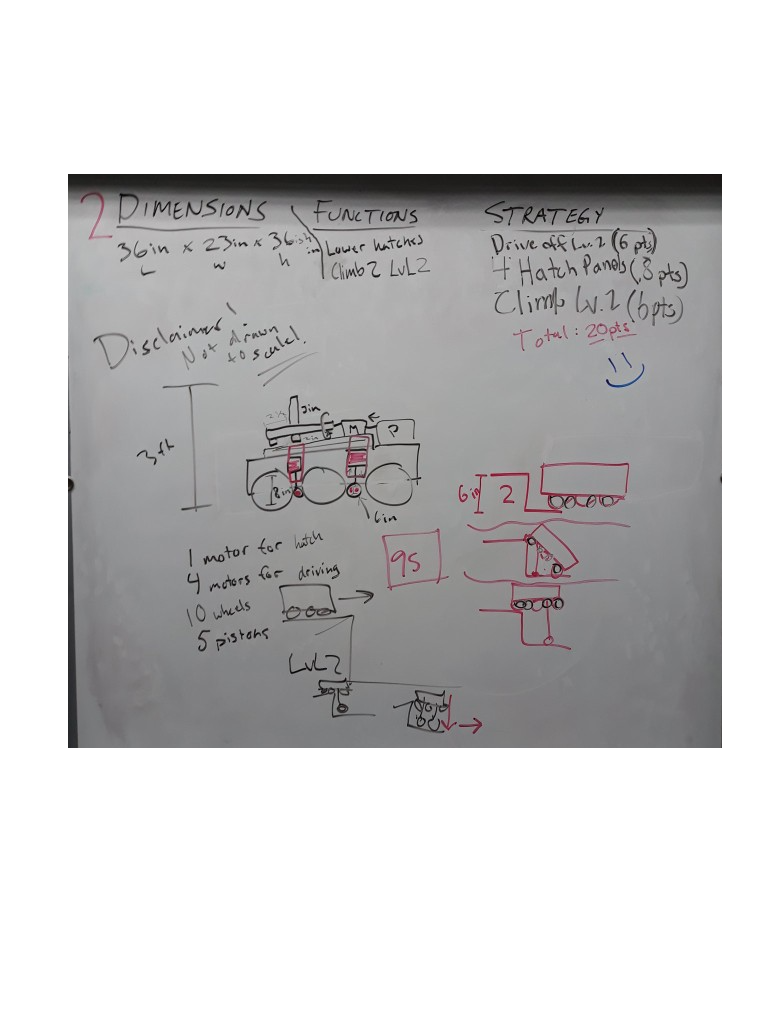 2 DIMENSIONS
36in x 23in x 36ish in
L w h
FUNCTIONS
Lower hatches
Climb 2 LvL2
STRATEGY
Drive off Lv. 2 (6 pts)
4 Hatch Panels (8 pts)
Climb Lv. 2 (6pts)
Total: 20pts
Disclaimer!
Not drawn
to scale!
3ft
3in
M
P
8in
6in
1 motor for hatch
4 motors for driving
10 wheels
5 pistons
95
LvL2
6in
2